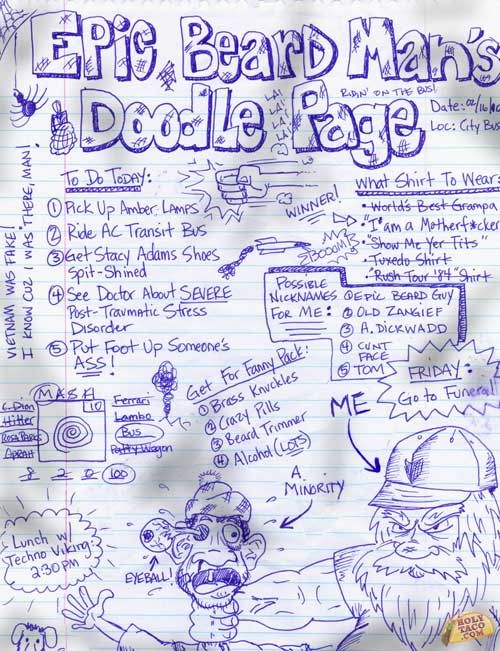 Epic Beard Man's
Doodle Page
LA! LA! LA! LA!
RIDIN' ON THE BUS!
Date: 02/16/10
Loc: City Bus
VIETNAM WAS FAKE!
I KNOW CUZ I WAS THERE, MAN!
To Do Today:
① Pick Up Amber Lamps
② Ride AC Transit Bus
③ Get Stacy Adams Shoes
Spit-Shined
④ See Doctor About SEVERE
Post-Travmatic Stress
Disorder
⑤ Put Foot Up Someone's
ASS!
WINNER!
BOOOM!
What Shirt To Wear:
• World's Best Grampa
• "I am a Motherf*cker"
• "Show Me Yer Tits"
• Tuxedo Shirt
• "Rush Tour '84" Shirt
Possible
Nicknames
For Me:
① Epic Beard Guy
② Old Zangief
③ A. Dickwadd
④ Cunt
Face
⑤ Tom
FRIDAY:
Go to Funeral
MASH
10
C. Dion
Hitler
Rosa Parks
Oprah
Ferrari
Lambo
Bus
Party Wagon
8 2 0 100
Get For Fanny Pack:
① Brass Knuckles
② Crazy Pills
③ Beard Trimmer
④ Alcohol (LOTS)
ME
A
MINORITY
EYEBALL!
Lunch w/
Techno Viking:
2:30 PM
HOLY
TACO
.COM